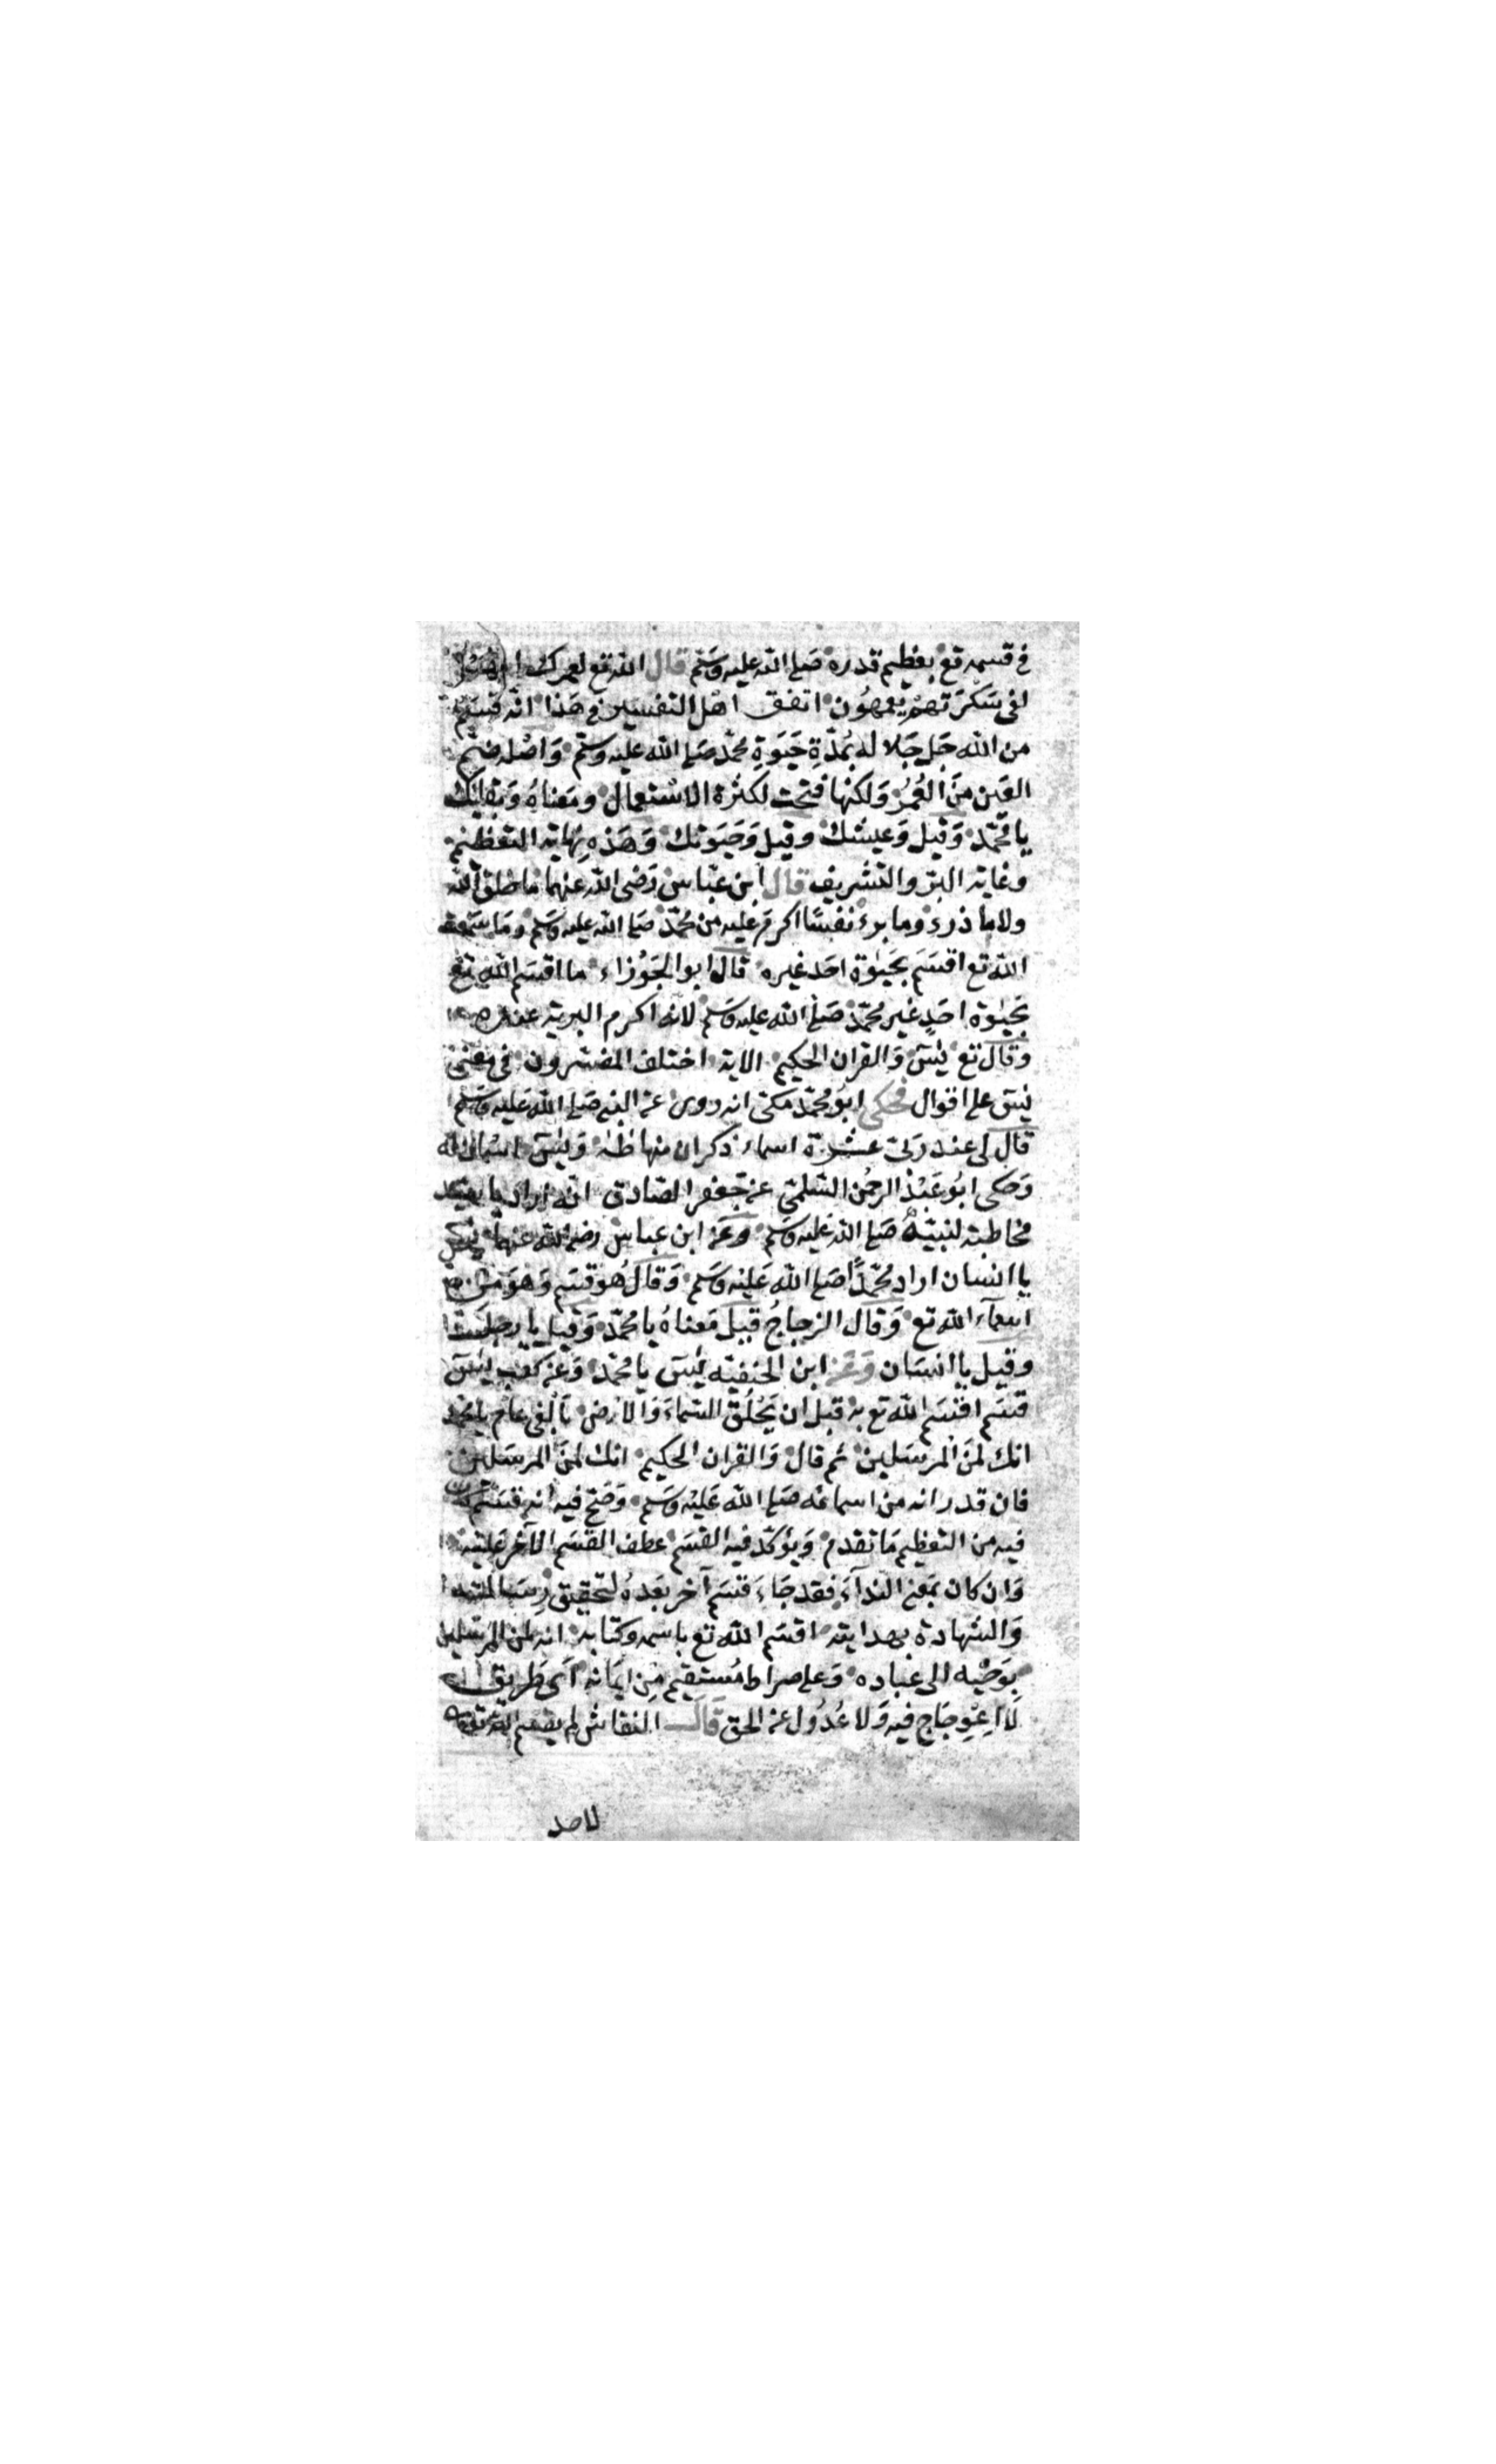 في قسمه تع بعظيم قدره صلى الله عليه وسلم قال الله تع لعمرك انهم
لفي سكرتهم يعمهون اتفق اهل التفسير في هذا انه قسم
من الله جل جلاله بمدة حيوة محمد صلى الله عليه وسلم واصله ضم
العين من العمر ولكنها فتحت لكثرة الاستعمال ومعناه وبقائك
يا محمد وقيل وعيشك وقيل وحيوتك وهذه نهاية التعظيم
وغاية البر والتشريف قال ابن عباس رضى الله عنهما ما خلق الله
ولا ما ذرء وما برء نفسا اكرم عليه من محمد صلى الله عليه وسلم وما سمعت
الله تع اقسم بحيوة احد غيره قال ابو الجوزاء ما اقسم الله تع
بحيوة احد غير محمد صلى الله عليه وسلم لانه اكرم البرية عنده
وقال تع يس والقران الحكيم الاية اختلف المفسرون في معنى
يس على اقوال فحكى ابو محمد مكى انه روى عن النبي صلى الله عليه وسلم
قال لى عند ربى عشرة اسماء ذكر ان منها طه ويس اسمان له
وحكى ابو عبد الرحمن السلمى عن جعفر الصادق انه اراد يا سيد
مخاطبة لنبيه صلى الله عليه وسلم وعن ابن عباس رضى الله عنهما يس
يا انسان اراد محمدا صلى الله عليه وسلم وقال هو قسم وهو من
اسماء الله تع وقال الزجاج قيل معناه يا محمد وقيل يا رجل
وقيل يا انسان وعن ابن الحنفية يس يا محمد وعن كعب يس
قسم اقسم الله تع به قبل ان يخلق السماء والارض بالفى عام يا محمد
انك لمن المرسلين ثم قال والقران الحكيم انك لمن المرسلين
فان قدر انه من اسمائه صلى الله عليه وسلم وصح فيه انه قسم كان
فيه من التعظيم ما تقدم ويؤكد فيه القسم عطف القسم الآخر عليه
وان كان بمعنى النداء فقد جاء قسم آخر بعده لتحقيق رسالته
والشهادة بهدايته اقسم الله تع باسمه وكتابه انه لمن المرسلين
بوحيه الى عباده وعلى صراط مستقيم من ايمانه اى طريق
لا اعوجاج فيه ولا عدول عن الحق قال النقاش لم يقسم الله تع
لاحد